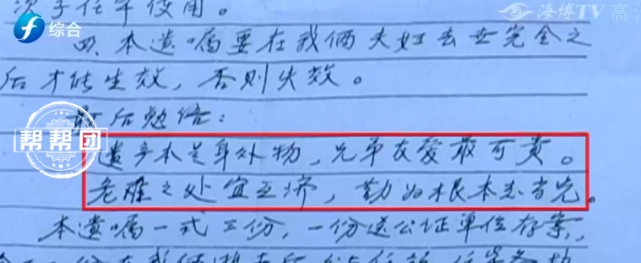 综合
海博TV 高清
次子任平使用。
四、本遗嘱要在我俩夫妇去世完全之
后才能生效，否则失效。
最后勉语：
帮帮团
遗产本是身外物，兄弟友爱最可贵。
危难之处宜互济，勤为根本志当先。
本遗嘱一式三份，一份送公证单位存案，